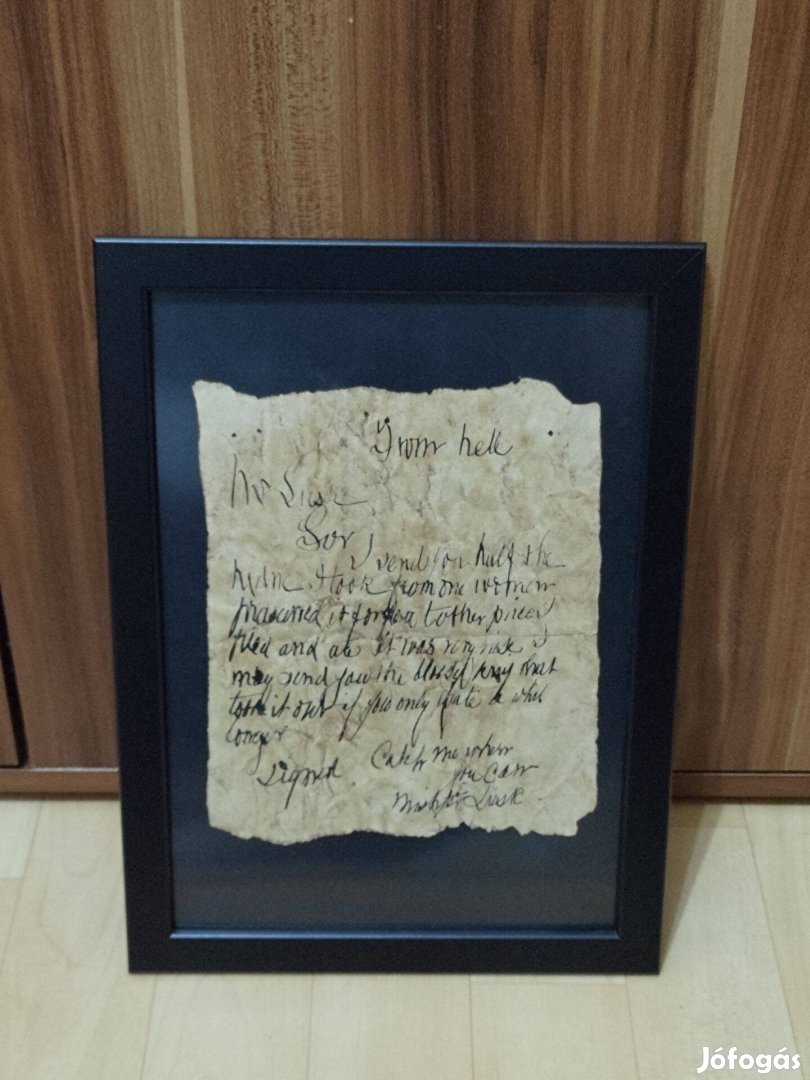 From hell
Mr Lusk
Sor
I send you half the
Kidne I took from one women
prasarved it for you tother piece I
fried and ate it was very nise I
may send you the bloody knif that
took it out if you only wate a whil
longer
signed Catch me when
you can
Mishter Lusk
Jófogás